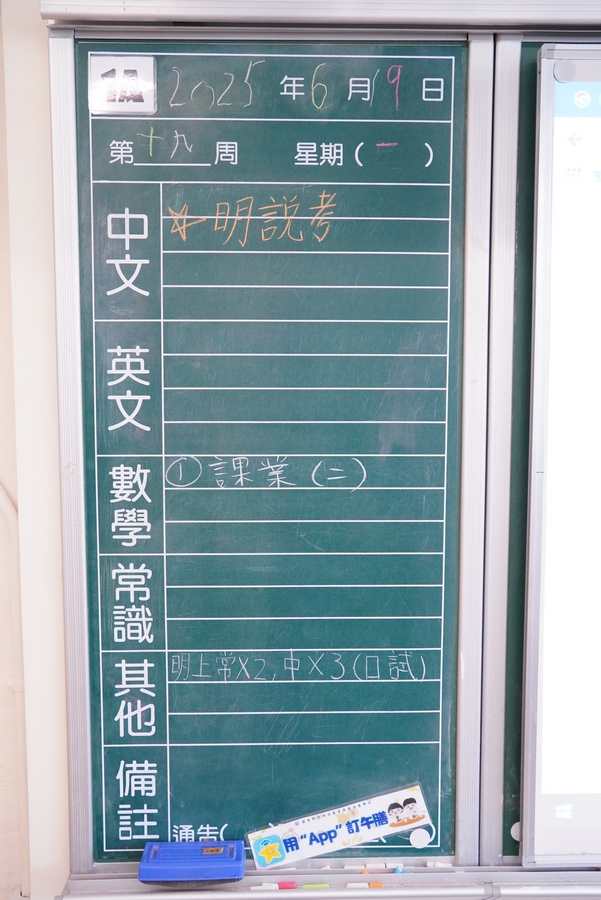 1A 2025 年 6 月 19 日
第 十九 周 星期 ( 一 )
中文 ☆ 明説考
英文
數學 ① 課業 (二)
常識
其他 明上常×2, 中×3 (口試)
備註
通告(
用"App"訂午膳